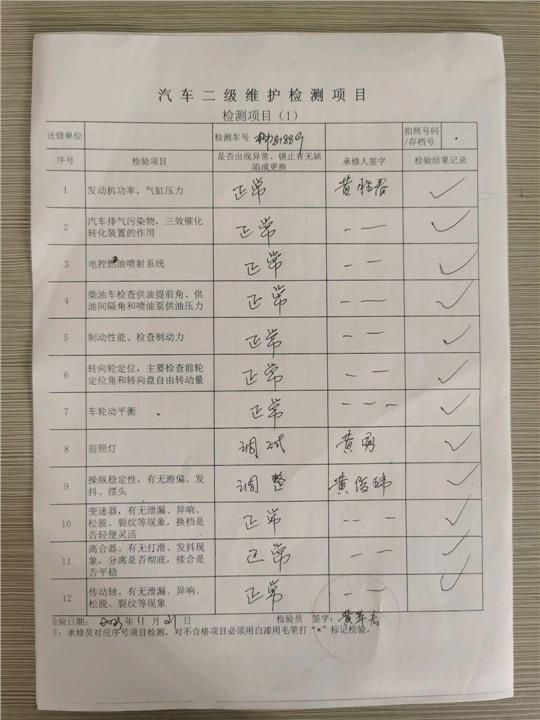 汽车二级维护检测项目
检测项目（1）
送修单位 检测车号 拍照号码/存档号
序号 检验项目 是否出现异常、锁止有无缺陷或更换 承修人签字 检验结果记录
1 发动机功率，气缸压力 正常 ✓
2 汽车排气污染物，三效催化转化装置的作用 正常 — — ✓
3 电控燃油喷射系统 正常 — — ✓
4 柴油车检查供油提前角、供油间隔角和喷油泵供油压力 正常 — — ✓
5 制动性能、检查制动力 正常 — — ✓
6 转向轮定位，主要检查前轮定位角和转向盘自由转动量 正常 — — ✓
7 车轮动平衡 正常 — — — ✓
8 前照灯 调试 黄勇 ✓
9 操纵稳定性，有无跑偏、发抖、摆头 调整 黄俊玮 ✓
10 变速器，有无泄漏、异响、松脱、裂纹等现象，换档是否轻便灵活 正常 — — ✓
11 离合器，有无打滑、发抖现象，分离是否彻底，接合是否平稳 正常 — — ✓
12 传动轴，有无泄漏、异响、松脱、裂纹等现象 正常 — — ✓
检验日期：2023年11月21日 检验员 签字：
注：承修员对应序号项目检测，对不合格项目必须用白漆用毛笔打“×”标记检验。